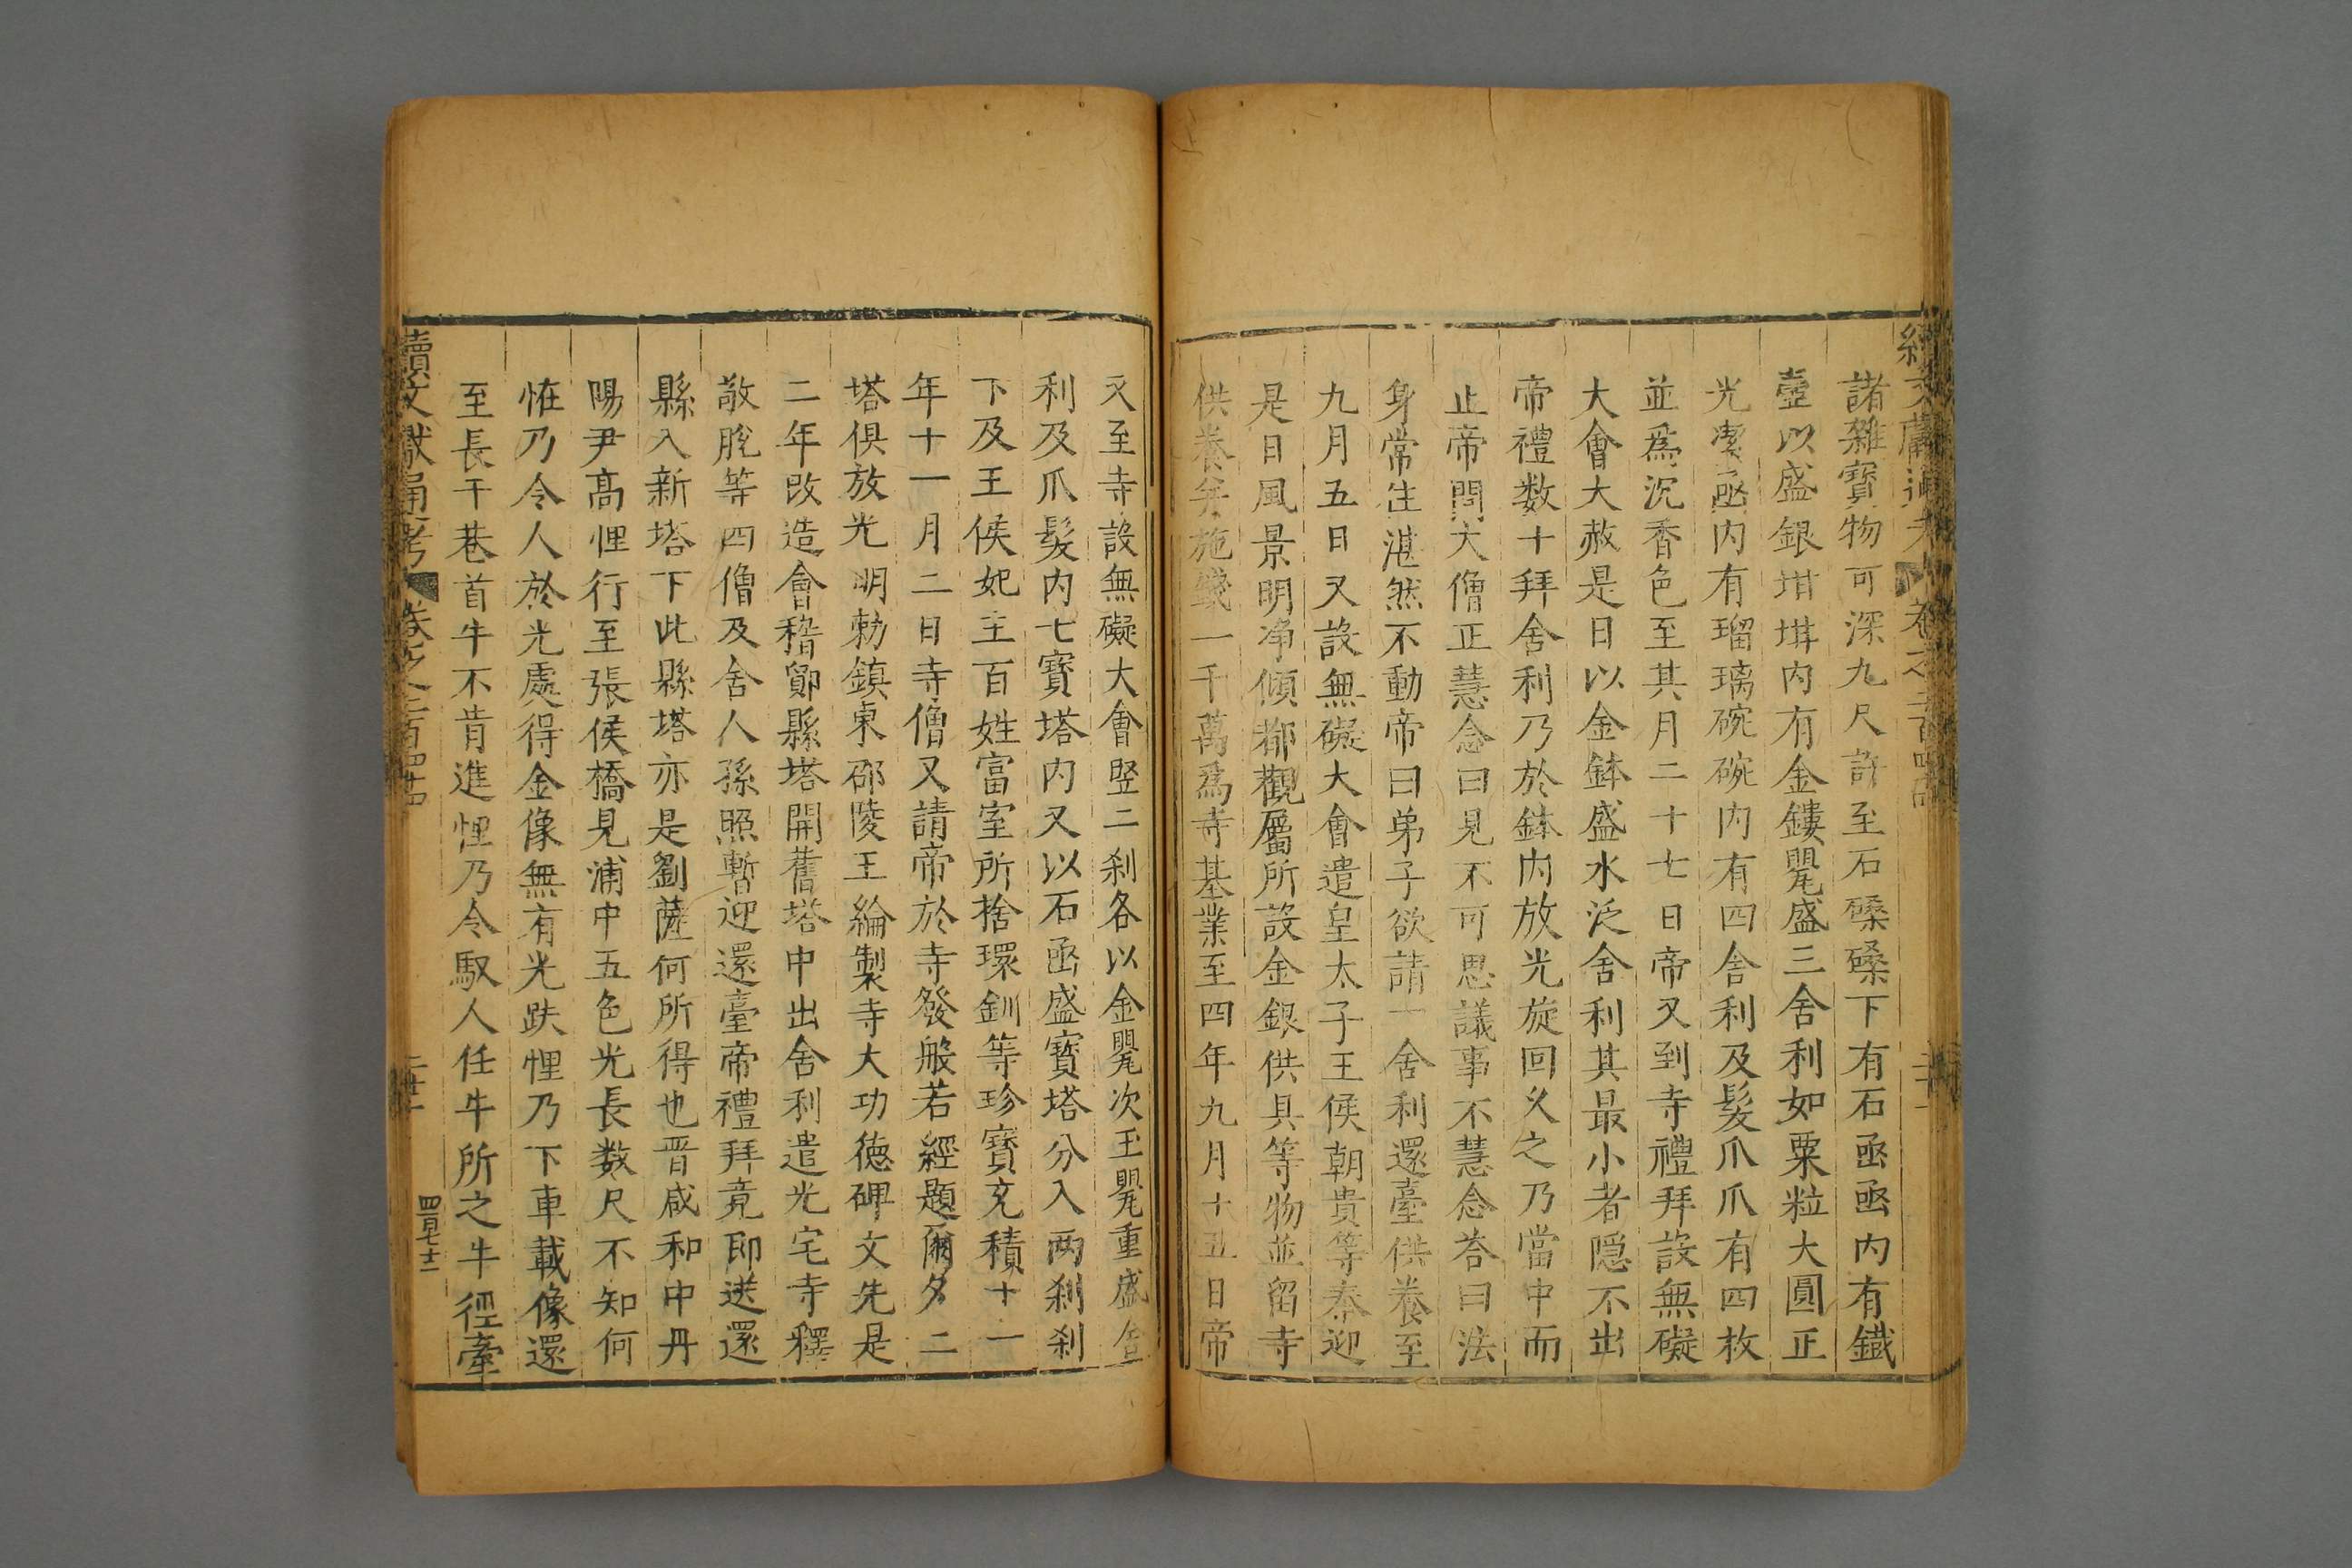 續文獻通考 卷之二百四十四
諸雜寶物可深九尺許至石磉磉下有石函函内有鐵
壺以盛銀坩坩内有金鏤罌盛三舍利如粟粒大圓正
光潔函内有瑠璃碗碗内有四舍利及髮爪爪有四枚
並爲沉香色至其月二十七日帝又到寺禮拜設無礙
大會大赦是日以金鉢盛水泛舍利其最小者隱不出
帝禮数十拜舍利乃於鉢内放光旋回久之乃當中而
止帝問大僧正慧念曰見不可思議事不慧念荅曰法
身常住湛然不動帝曰弟子欲請一舍利還臺供養至
九月五日又設無礙大會遣皇太子王侯朝貴等奉迎
是日風景明净傾都觀屬所設金銀供具等物並留寺
供養并施錢一千萬爲寺基業至四年九月十五日帝
又至寺設無礙大會竪二刹各以金罌次玉罌重盛舍
利及爪髮内七寶塔内又以石函盛寶塔分入两刹刹
下及王侯妃主百姓富室所捨環釧等珍寶充積十一
年十一月二日寺僧又請帝於寺發般若經題爾夕二
塔俱放光明勅鎮東邵陵王綸製寺大功德碑文先是
二年改造會稽鄮縣塔開舊塔中出舍利遣光宅寺釋
敬脫等四僧及舍人孫照暫迎還臺帝禮拜竟即送還
縣入新塔下此縣塔亦是劉薩何所得也晋咸和中丹
陽尹高悝行至張侯橋見浦中五色光長数尺不知何
恠乃令人於光處得金像無有光趺悝乃下車載像還
至長干巷首牛不肯進悝乃令馭人任牛所之牛徑牽
續文獻通考 卷之二百四十四